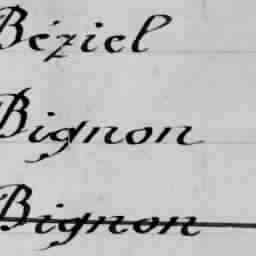 Béziel
Bignon
Bignon